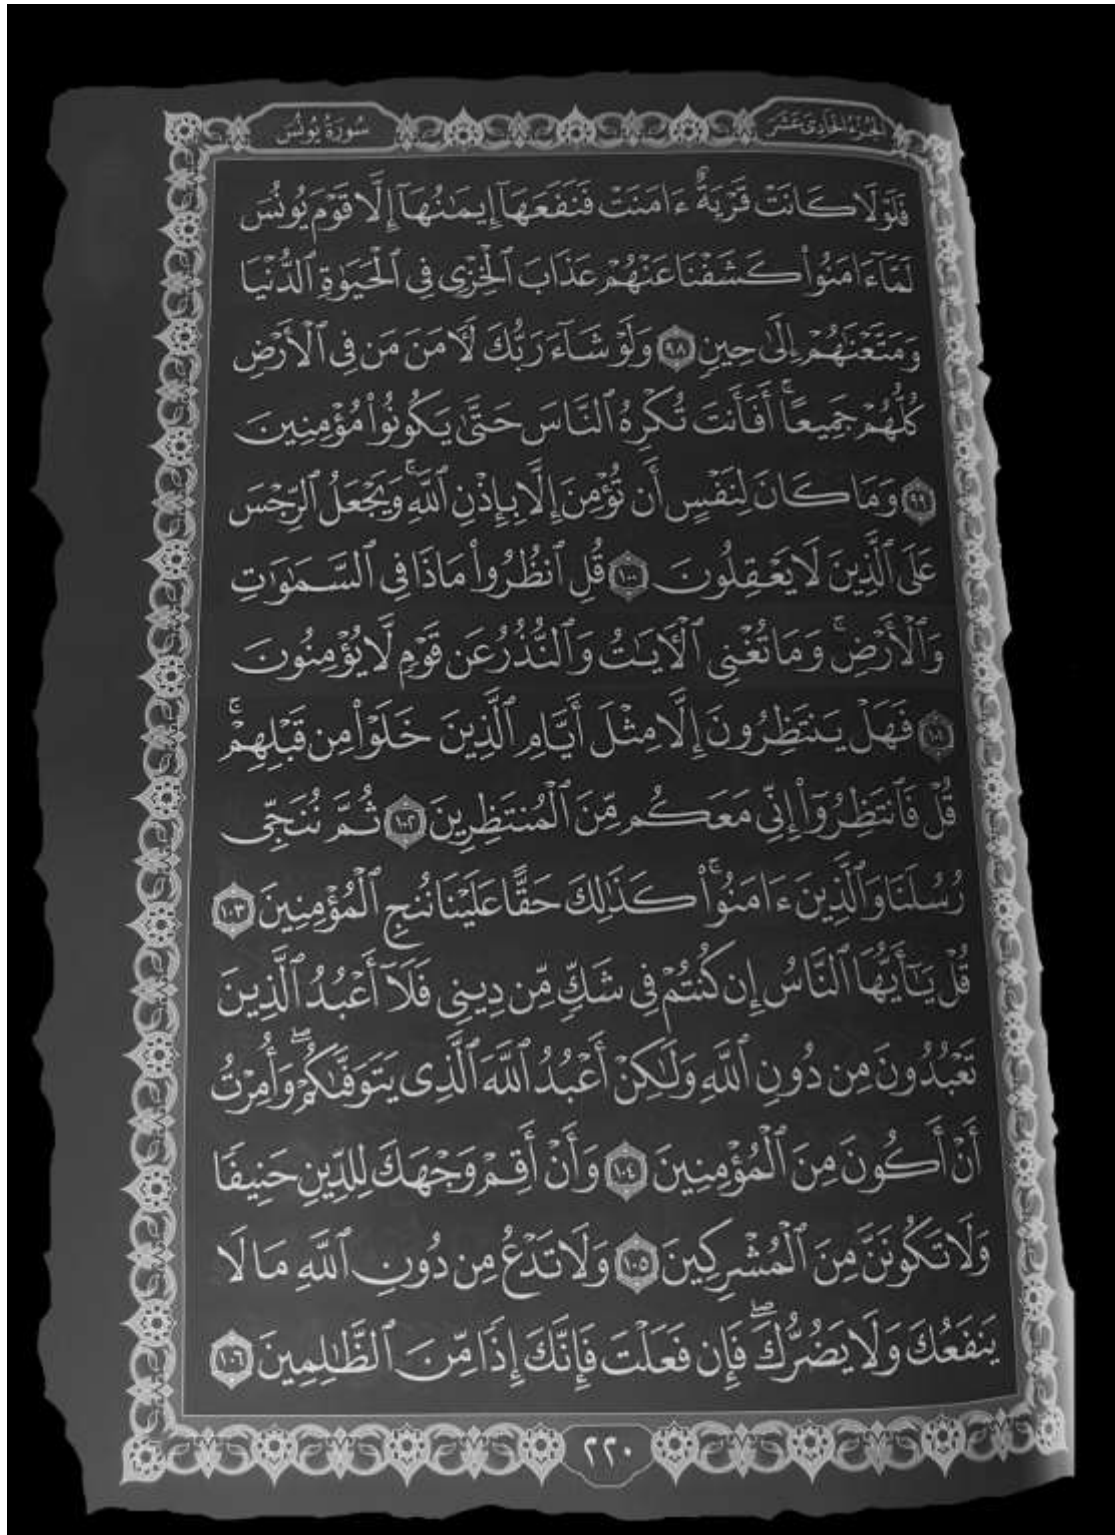 الجزء الحادي عشر
سورة يونس
فَلَوْلَا كَانَتْ قَرْيَةٌ ءَامَنَتْ فَنَفَعَهَآ إِيمَٰنُهَآ إِلَّا قَوْمَ يُونُسَ
لَمَّآ ءَامَنُوا۟ كَشَفْنَا عَنْهُمْ عَذَابَ ٱلْخِزْىِ فِى ٱلْحَيَوٰةِ ٱلدُّنْيَا
وَمَتَّعْنَٰهُمْ إِلَىٰ حِينٍ ٩٨ وَلَوْ شَآءَ رَبُّكَ لَـَٔامَنَ مَن فِى ٱلْأَرْضِ
كُلُّهُمْ جَمِيعًا ۚ أَفَأَنتَ تُكْرِهُ ٱلنَّاسَ حَتَّىٰ يَكُونُوا۟ مُؤْمِنِينَ
٩٩ وَمَا كَانَ لِنَفْسٍ أَن تُؤْمِنَ إِلَّا بِإِذْنِ ٱللَّهِ ۚ وَيَجْعَلُ ٱلرِّجْسَ
عَلَى ٱلَّذِينَ لَا يَعْقِلُونَ ١٠٠ قُلِ ٱنظُرُوا۟ مَاذَا فِى ٱلسَّمَٰوَٰتِ
وَٱلْأَرْضِ ۚ وَمَا تُغْنِى ٱلْـَٔايَٰتُ وَٱلنُّذُرُ عَن قَوْمٍ لَّا يُؤْمِنُونَ
١٠١ فَهَلْ يَنتَظِرُونَ إِلَّا مِثْلَ أَيَّامِ ٱلَّذِينَ خَلَوْا۟ مِن قَبْلِهِمْ ۚ
قُلْ فَٱنتَظِرُوٓا۟ إِنِّى مَعَكُم مِّنَ ٱلْمُنتَظِرِينَ ١٠٢ ثُمَّ نُنَجِّى
رُسُلَنَا وَٱلَّذِينَ ءَامَنُوا۟ ۚ كَذَٰلِكَ حَقًّا عَلَيْنَا نُنجِ ٱلْمُؤْمِنِينَ ١٠٣
قُلْ يَٰٓأَيُّهَا ٱلنَّاسُ إِن كُنتُمْ فِى شَكٍّ مِّن دِينِى فَلَآ أَعْبُدُ ٱلَّذِينَ
تَعْبُدُونَ مِن دُونِ ٱللَّهِ وَلَٰكِنْ أَعْبُدُ ٱللَّهَ ٱلَّذِى يَتَوَفَّىٰكُمْ ۖ وَأُمِرْتُ
أَنْ أَكُونَ مِنَ ٱلْمُؤْمِنِينَ ١٠٤ وَأَنْ أَقِمْ وَجْهَكَ لِلدِّينِ حَنِيفًا
وَلَا تَكُونَنَّ مِنَ ٱلْمُشْرِكِينَ ١٠٥ وَلَا تَدْعُ مِن دُونِ ٱللَّهِ مَا لَا
يَنفَعُكَ وَلَا يَضُرُّكَ ۖ فَإِن فَعَلْتَ فَإِنَّكَ إِذًا مِّنَ ٱلظَّٰلِمِينَ ١٠٦
٢٢٠